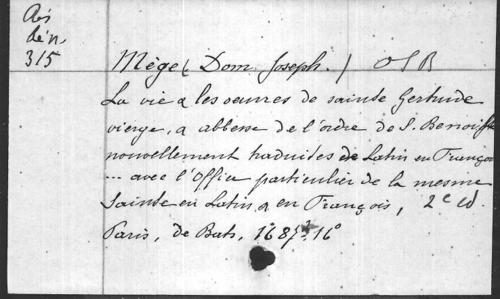 Rés
bén.
315
Mège (Dom Joseph.) OSB
La vie & les oeuvres de sainte Gertrude
vierge, & abbesse de l'ordre de S. Benoist
nouvellement traduites de Latin en François
... avec l'Office particulier de la mesme
Sainte en Latin & en François, 2e éd.
Paris, de Bats, 1687. 16°